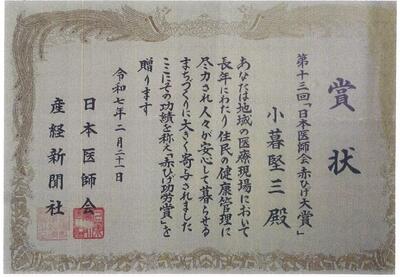 賞状
第十三回「日本医師会赤ひげ大賞」
小暮堅三殿
あなたは地域の医療現場において
長年にわたり住民の健康管理に
尽力され人々が安心して暮らせる
まちづくりに大きく寄与されました
ここにその功績を称え「赤ひげ功労賞」を
贈ります
令和七年二月二十一日
日本医師会
産経新聞社